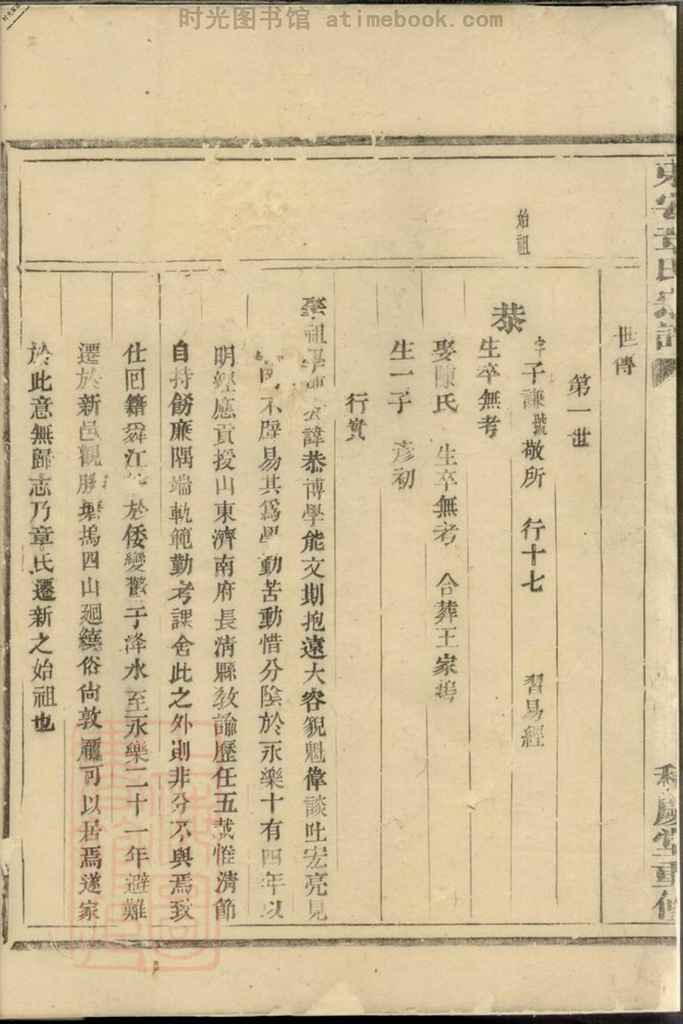 时光图书馆 atimebook.com
東安章氏宗譜
慶堂重修
世傳
第一世
始祖
恭 字子謙號敬所 行十七 習易經
生卒無考
娶陳氏 生卒無考 合葬王家塢
生一子 彥初
行實
祖 諱恭博學能文期抱遠大容貌魁偉談吐宏亮見
不磨易其爲學勤苦動惜分陰於永樂十有四年以
明經應貢授山東濟南府長清縣敎諭歷任五載惟清節
自持飭廉隅端軌範勤考課舍此之外則非分不與焉致
仕回籍舜江 於倭變叢于澤水至永樂二十一年避難
遷於新邑觀勝 塢四山廻繞俗尙敦龐可以居焉遂家
於此意無歸志乃章氏遷新之始祖也